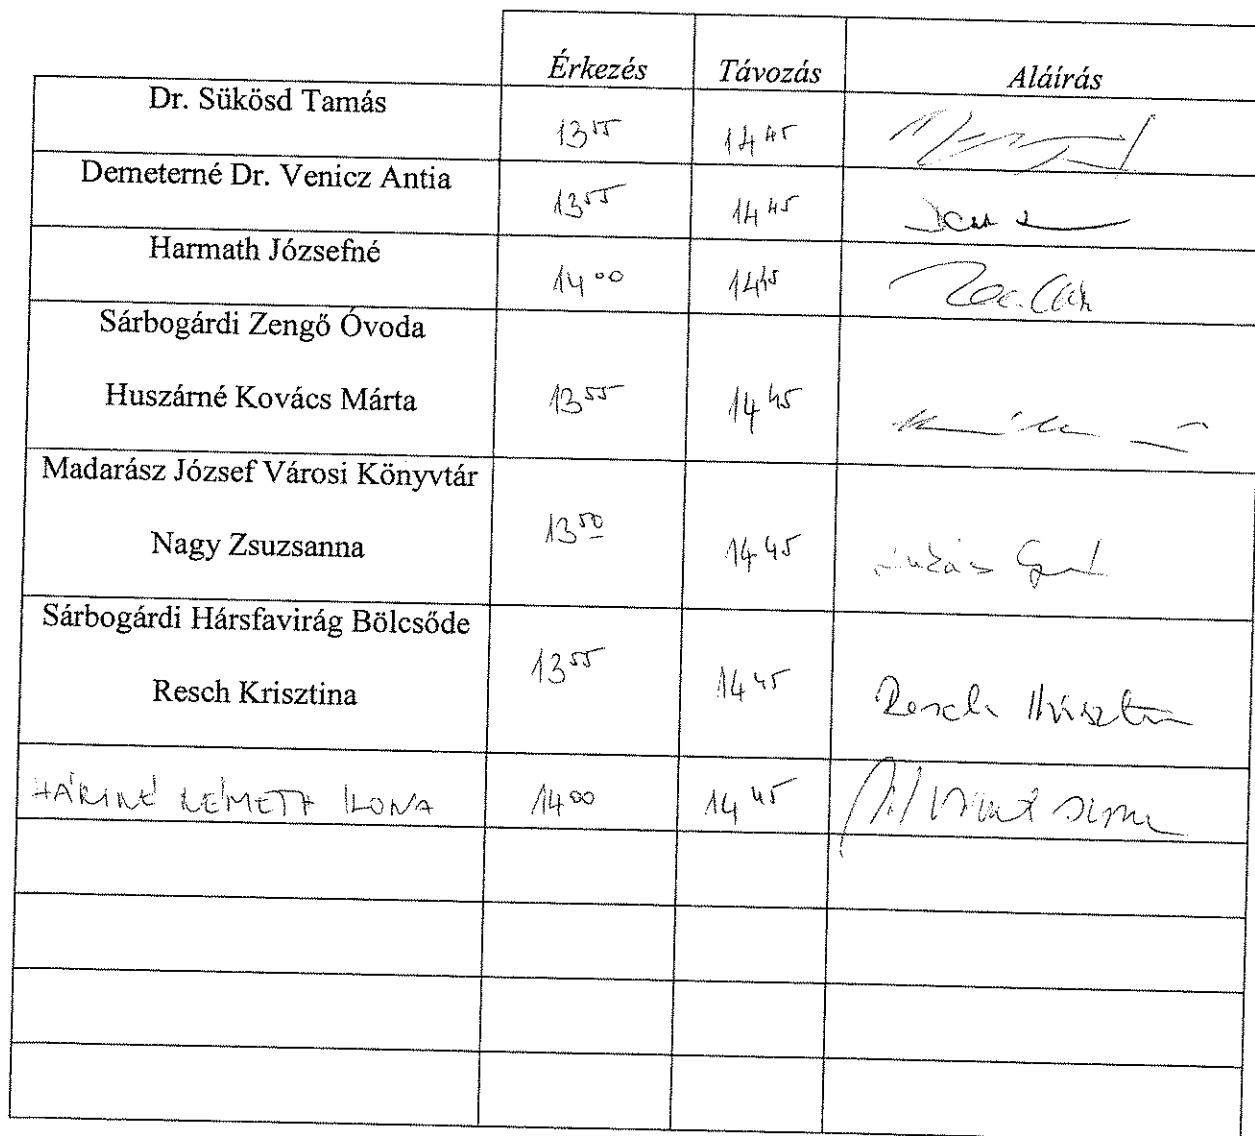 Érkezés Távozás Aláírás
Dr. Sükösd Tamás
13 55 14 45
Demeterné Dr. Venicz Antia
13 55 14 45
Harmath Józsefné
14 00 14 45
Sárbogárdi Zengő Óvoda
Huszárné Kovács Márta 13 55 14 45
Madarász József Városi Könyvtár
Nagy Zsuzsanna 13 50 14 45
Sárbogárdi Hársfavirág Bölcsőde
Resch Krisztina 13 55 14 45 Resch Krisztina
HÁRINÉ NÉMETH ILONA 14 00 14 45